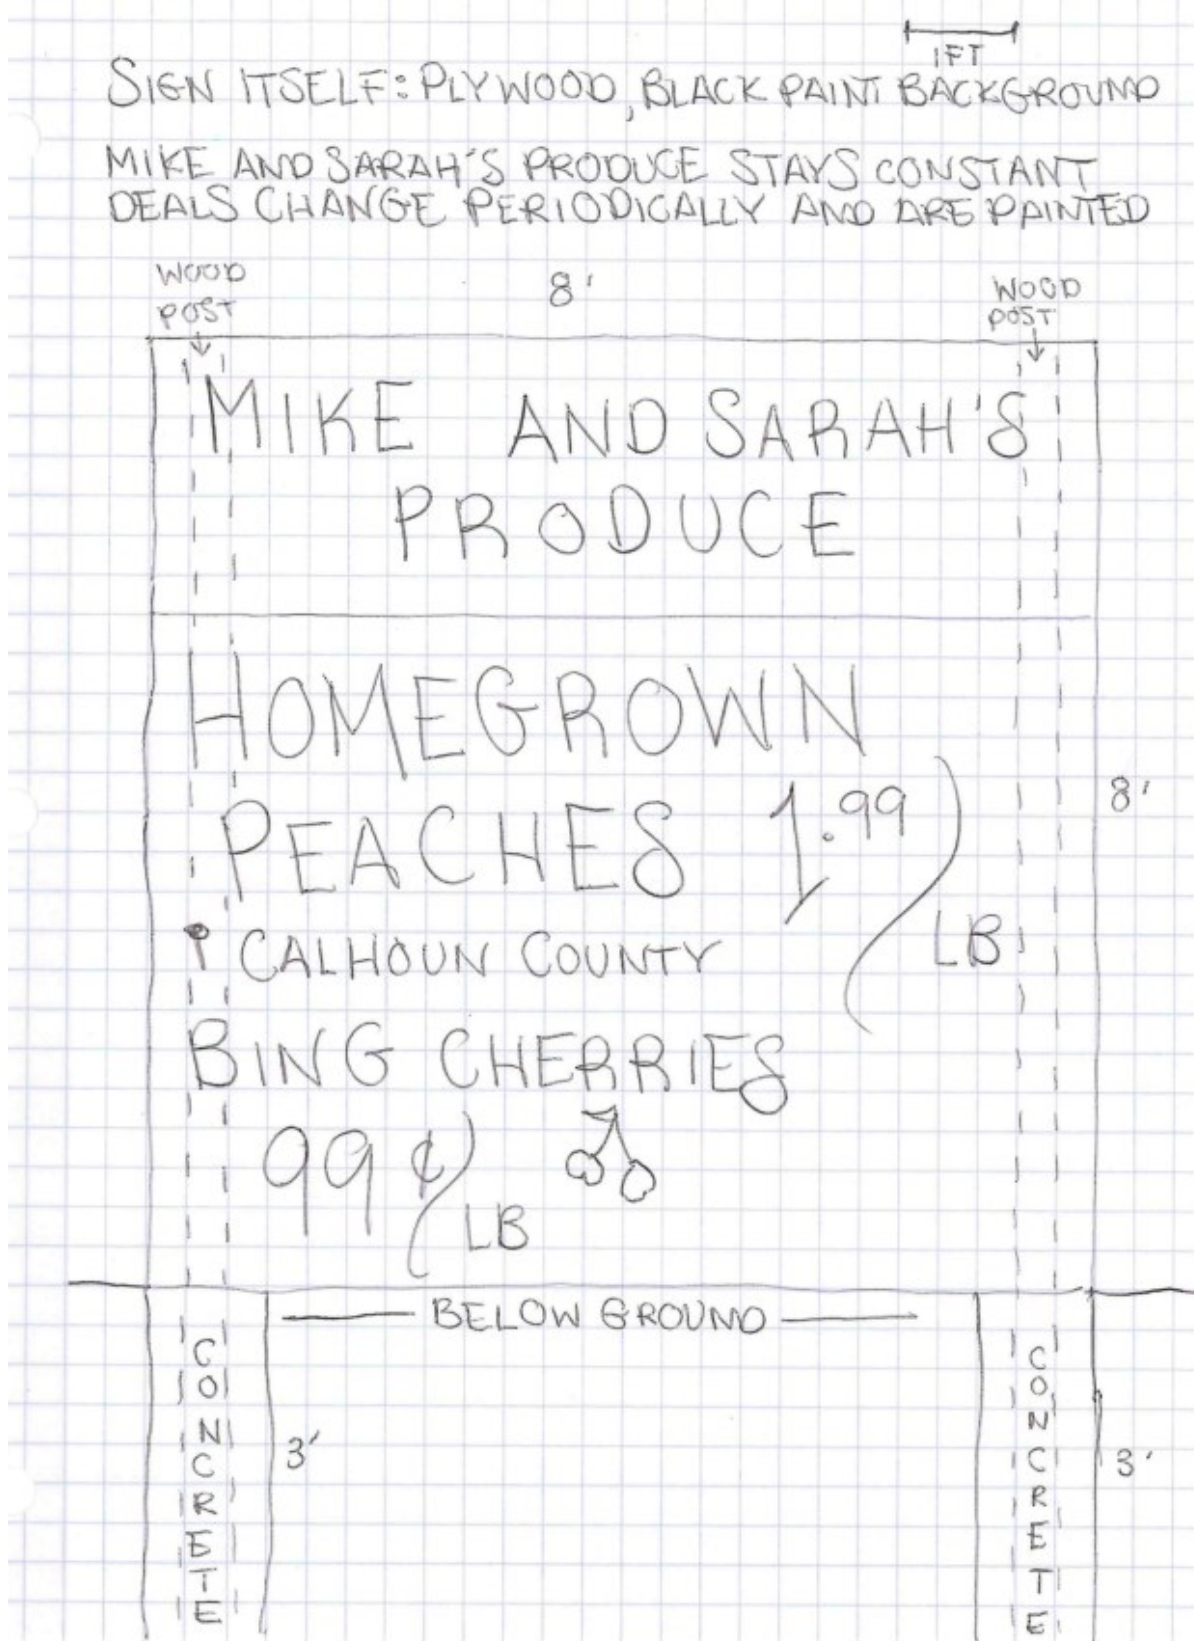 1FT
SIGN ITSELF: PLYWOOD, BLACK PAINT BACKGROUND
MIKE AND SARAH'S PRODUCE STAYS CONSTANT
DEALS CHANGE PERIODICALLY AND ARE PAINTED
WOOD
POST
8'
WOOD
POST
MIKE AND SARAH'S
PRODUCE
HOMEGROWN
PEACHES 1.99/LB
8'
CALHOUN COUNTY
BING CHERRIES
99¢/LB
BELOW GROUND
CONCRETE
3'
CONCRETE
3'